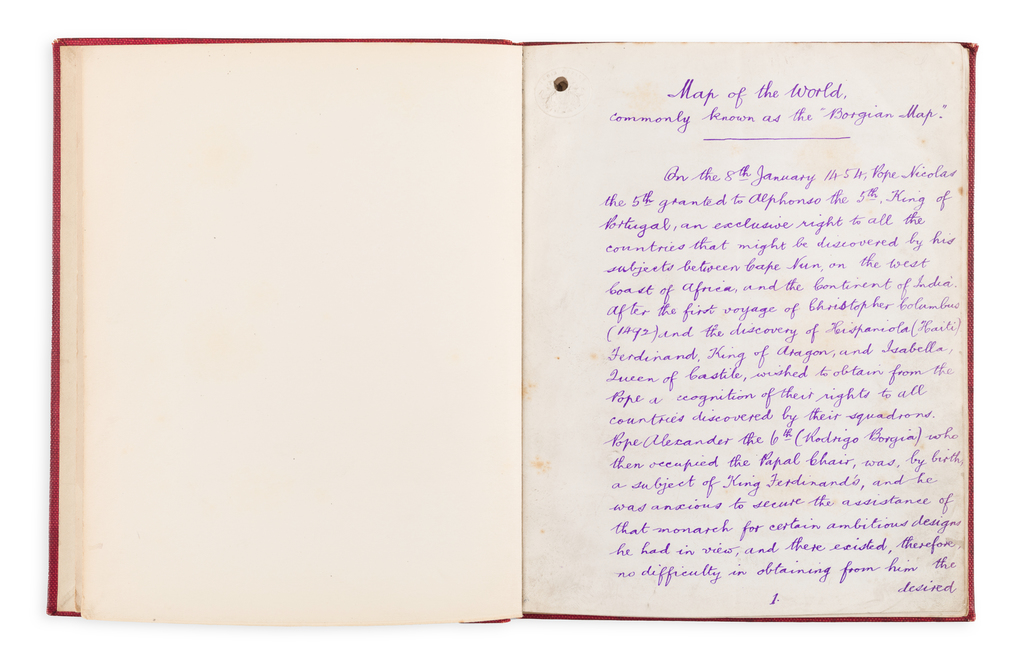 Map of the World,
commonly known as the "Borgian Map."
On the 8th January 1454, Pope Nicolas
the 5th granted to Alphonso the 5th, King of
Portugal, an exclusive right to all the
countries that might be discovered by his
subjects between Cape Nun, on the west
Coast of Africa, and the Continent of India.
After the first voyage of Christopher Columbus
(1492) and the discovery of Hispaniola (Haiti)
Ferdinand, King of Aragon, and Isabella,
Queen of Castile, wished to obtain from the
Pope a ecognition of their rights to all
countries discovered by their squadrons.
Pope Alexander the 6th (Rodrigo Borgia) who
then occupied the Papal Chair, was, by birth
a subject of King Ferdinand's, and he
was anxious to secure the assistance of
that monarch for certain ambitious designs
he had in view, and there existed, therefore,
no difficulty in obtaining from him the
desired
1.